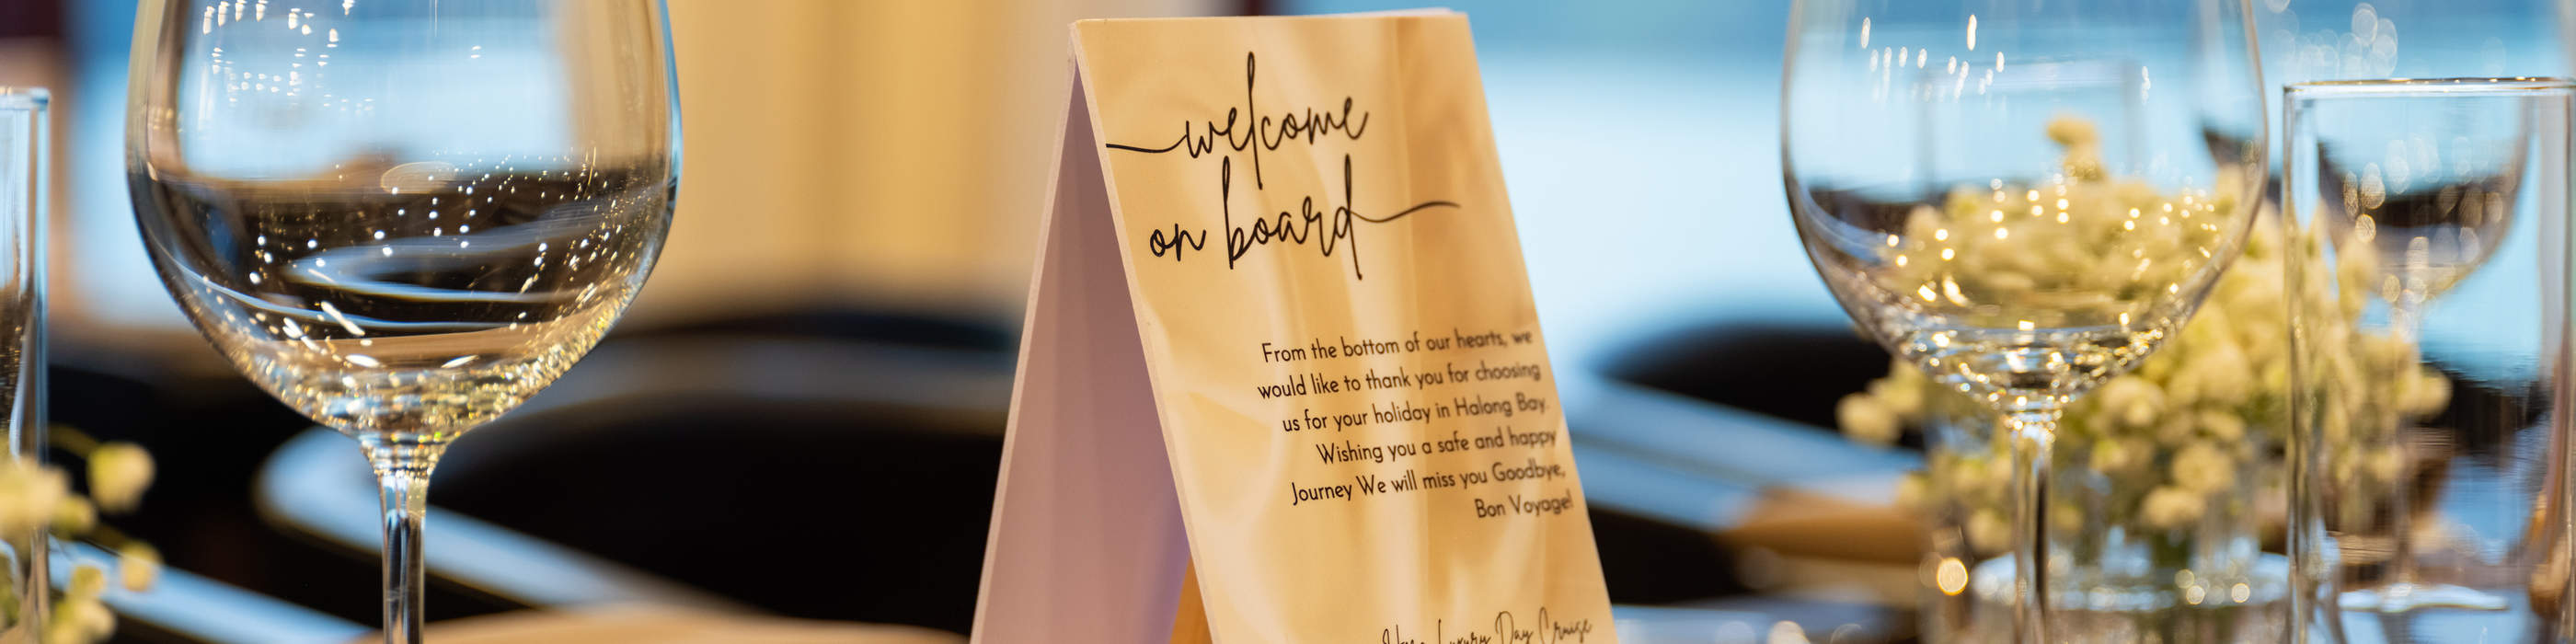 welcome
on board
From the bottom of our hearts, we
would like to thank you for choosing
us for your holiday in Halong Bay.
Wishing you a safe and happy
Journey We will miss you Goodbye,
Bon Voyage!
Luxury Day Cruise